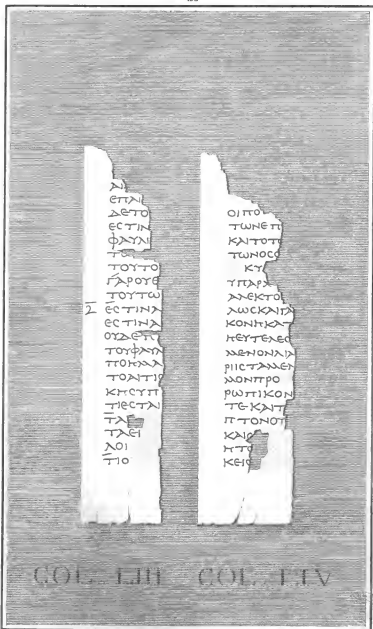 ΑΙ
ΕΠΑΙ
ΔΕΤΟ
ΕϹΤΙΝ
ΦΑΥΛ
ΤΟΥΤΟ
ΓΑΡΟΥΕ
ΤΟΥΤΩ
ΕϹΤΙΝΑ
ΕϹΤΙΝΑ
ΟΥΔΕΠ
ΤΟΥΦΑΥ
ΠΟΛΛΑ
ΤΟΑΠΤΙΟ
ΚΗϹΥΠ
ΤΙΕϹΤΑΙ
ΤΑ
ΤΑΕΙ
ΛΟΙ
ΤΙΟ
ΟΙΠΟ
ΤΩΝΕΠ
ΚΑΙΤΟΠ
ΤΩΝΟϹΟ
ΚΥ
ΥΠΑΡΑ
ΑΛΕΚΤΟ
ΛΩϹΚΑΙΤΑ
ΚΟΝΗΚΑΙ
ΗΕΥΤΕΛΕϹ
ΜΕΝΟΝΛΙΑ
ΡΙΙϹΤΑΜΕΝ
ΜΟΝΠΡΟ
ΡΩΠΙΚΟΝ
ΤΕΚΑΙΠ
ΠΤΟΝΟΤ
ΚΑΙϹ
ΗΤΟ
ΚΕΙϹ
COL. LIII COL. LIV